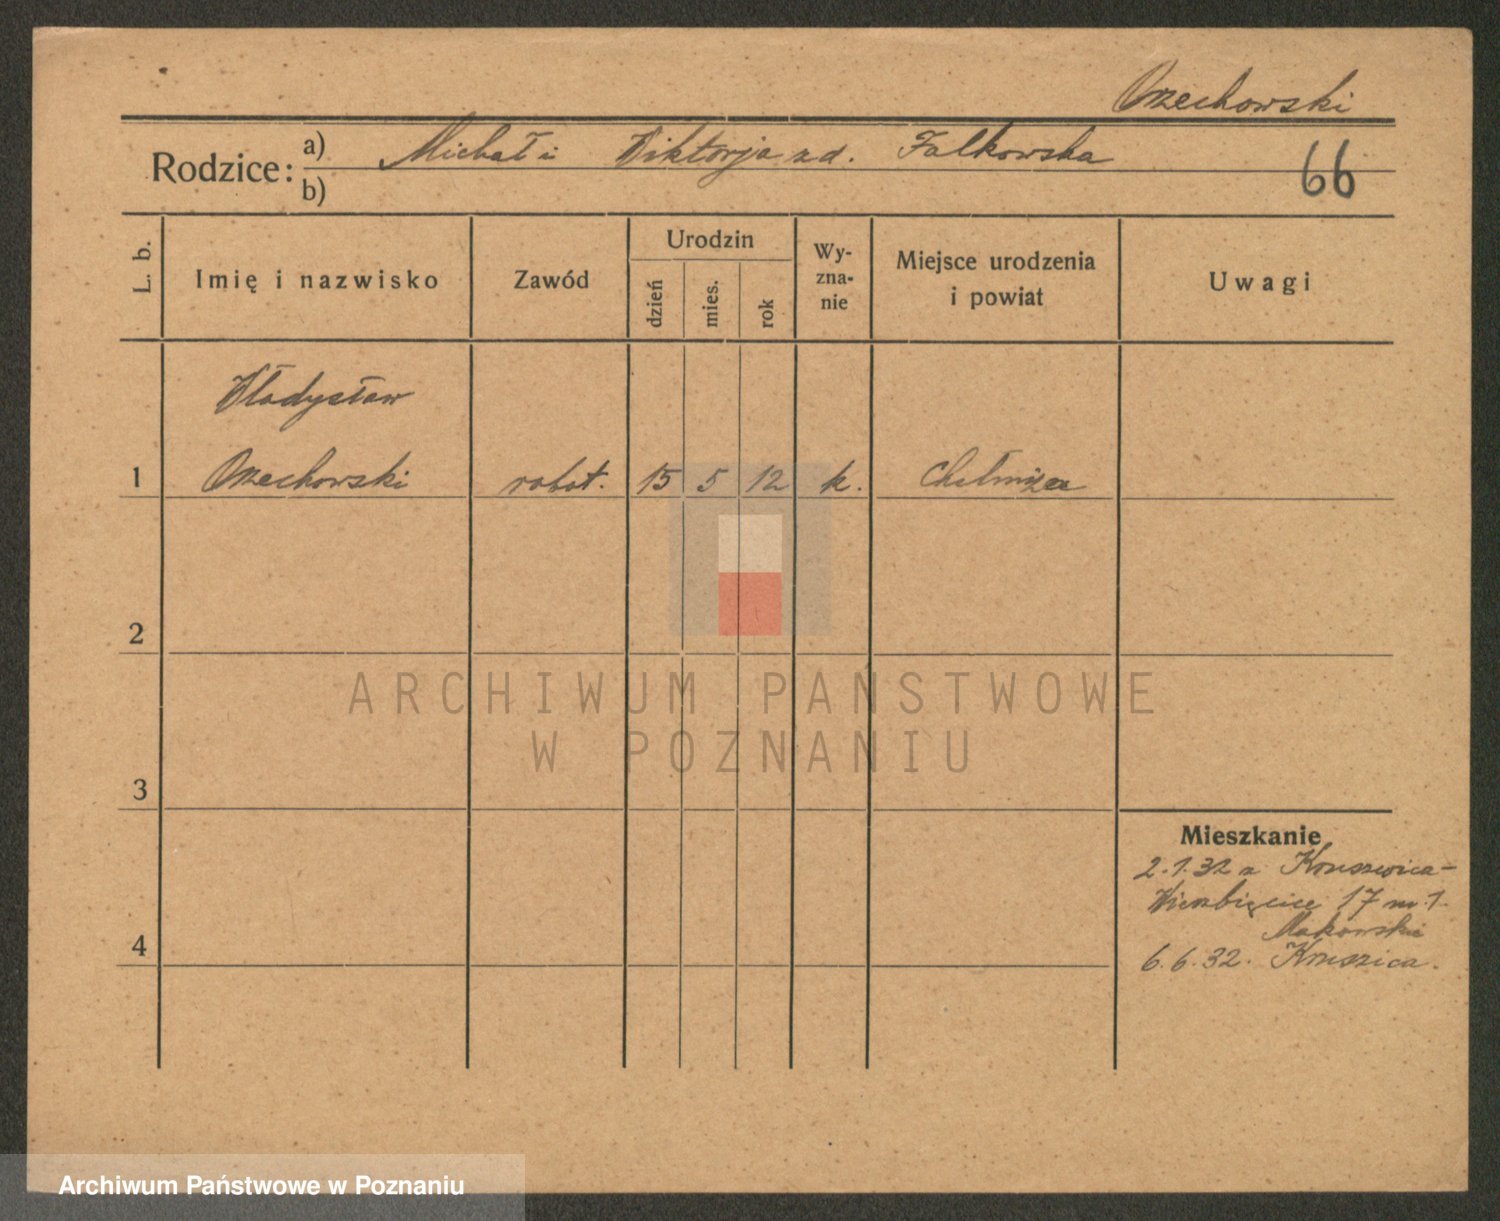 Orzechowski
Rodzice: a) Michał i Wiktorja z d. Falkowska
b)
66
L. b.
Imię i nazwisko
Zawód
Urodzin
dzień
mies.
rok
Wy-
zna-
nie
Miejsce urodzenia
i powiat
Uwagi
Władysław
1 Orzechowski robot. 15 5 12 k. Chełmża
2
3
4
Mieszkanie
2.1.32 z Kruszwica-
Wierzbięcice 17 m. 1.
Makowski
6.6.32.
ARCHIWUM PAŃSTWOWE
W POZNANIU
Archiwum Państwowe w Poznaniu